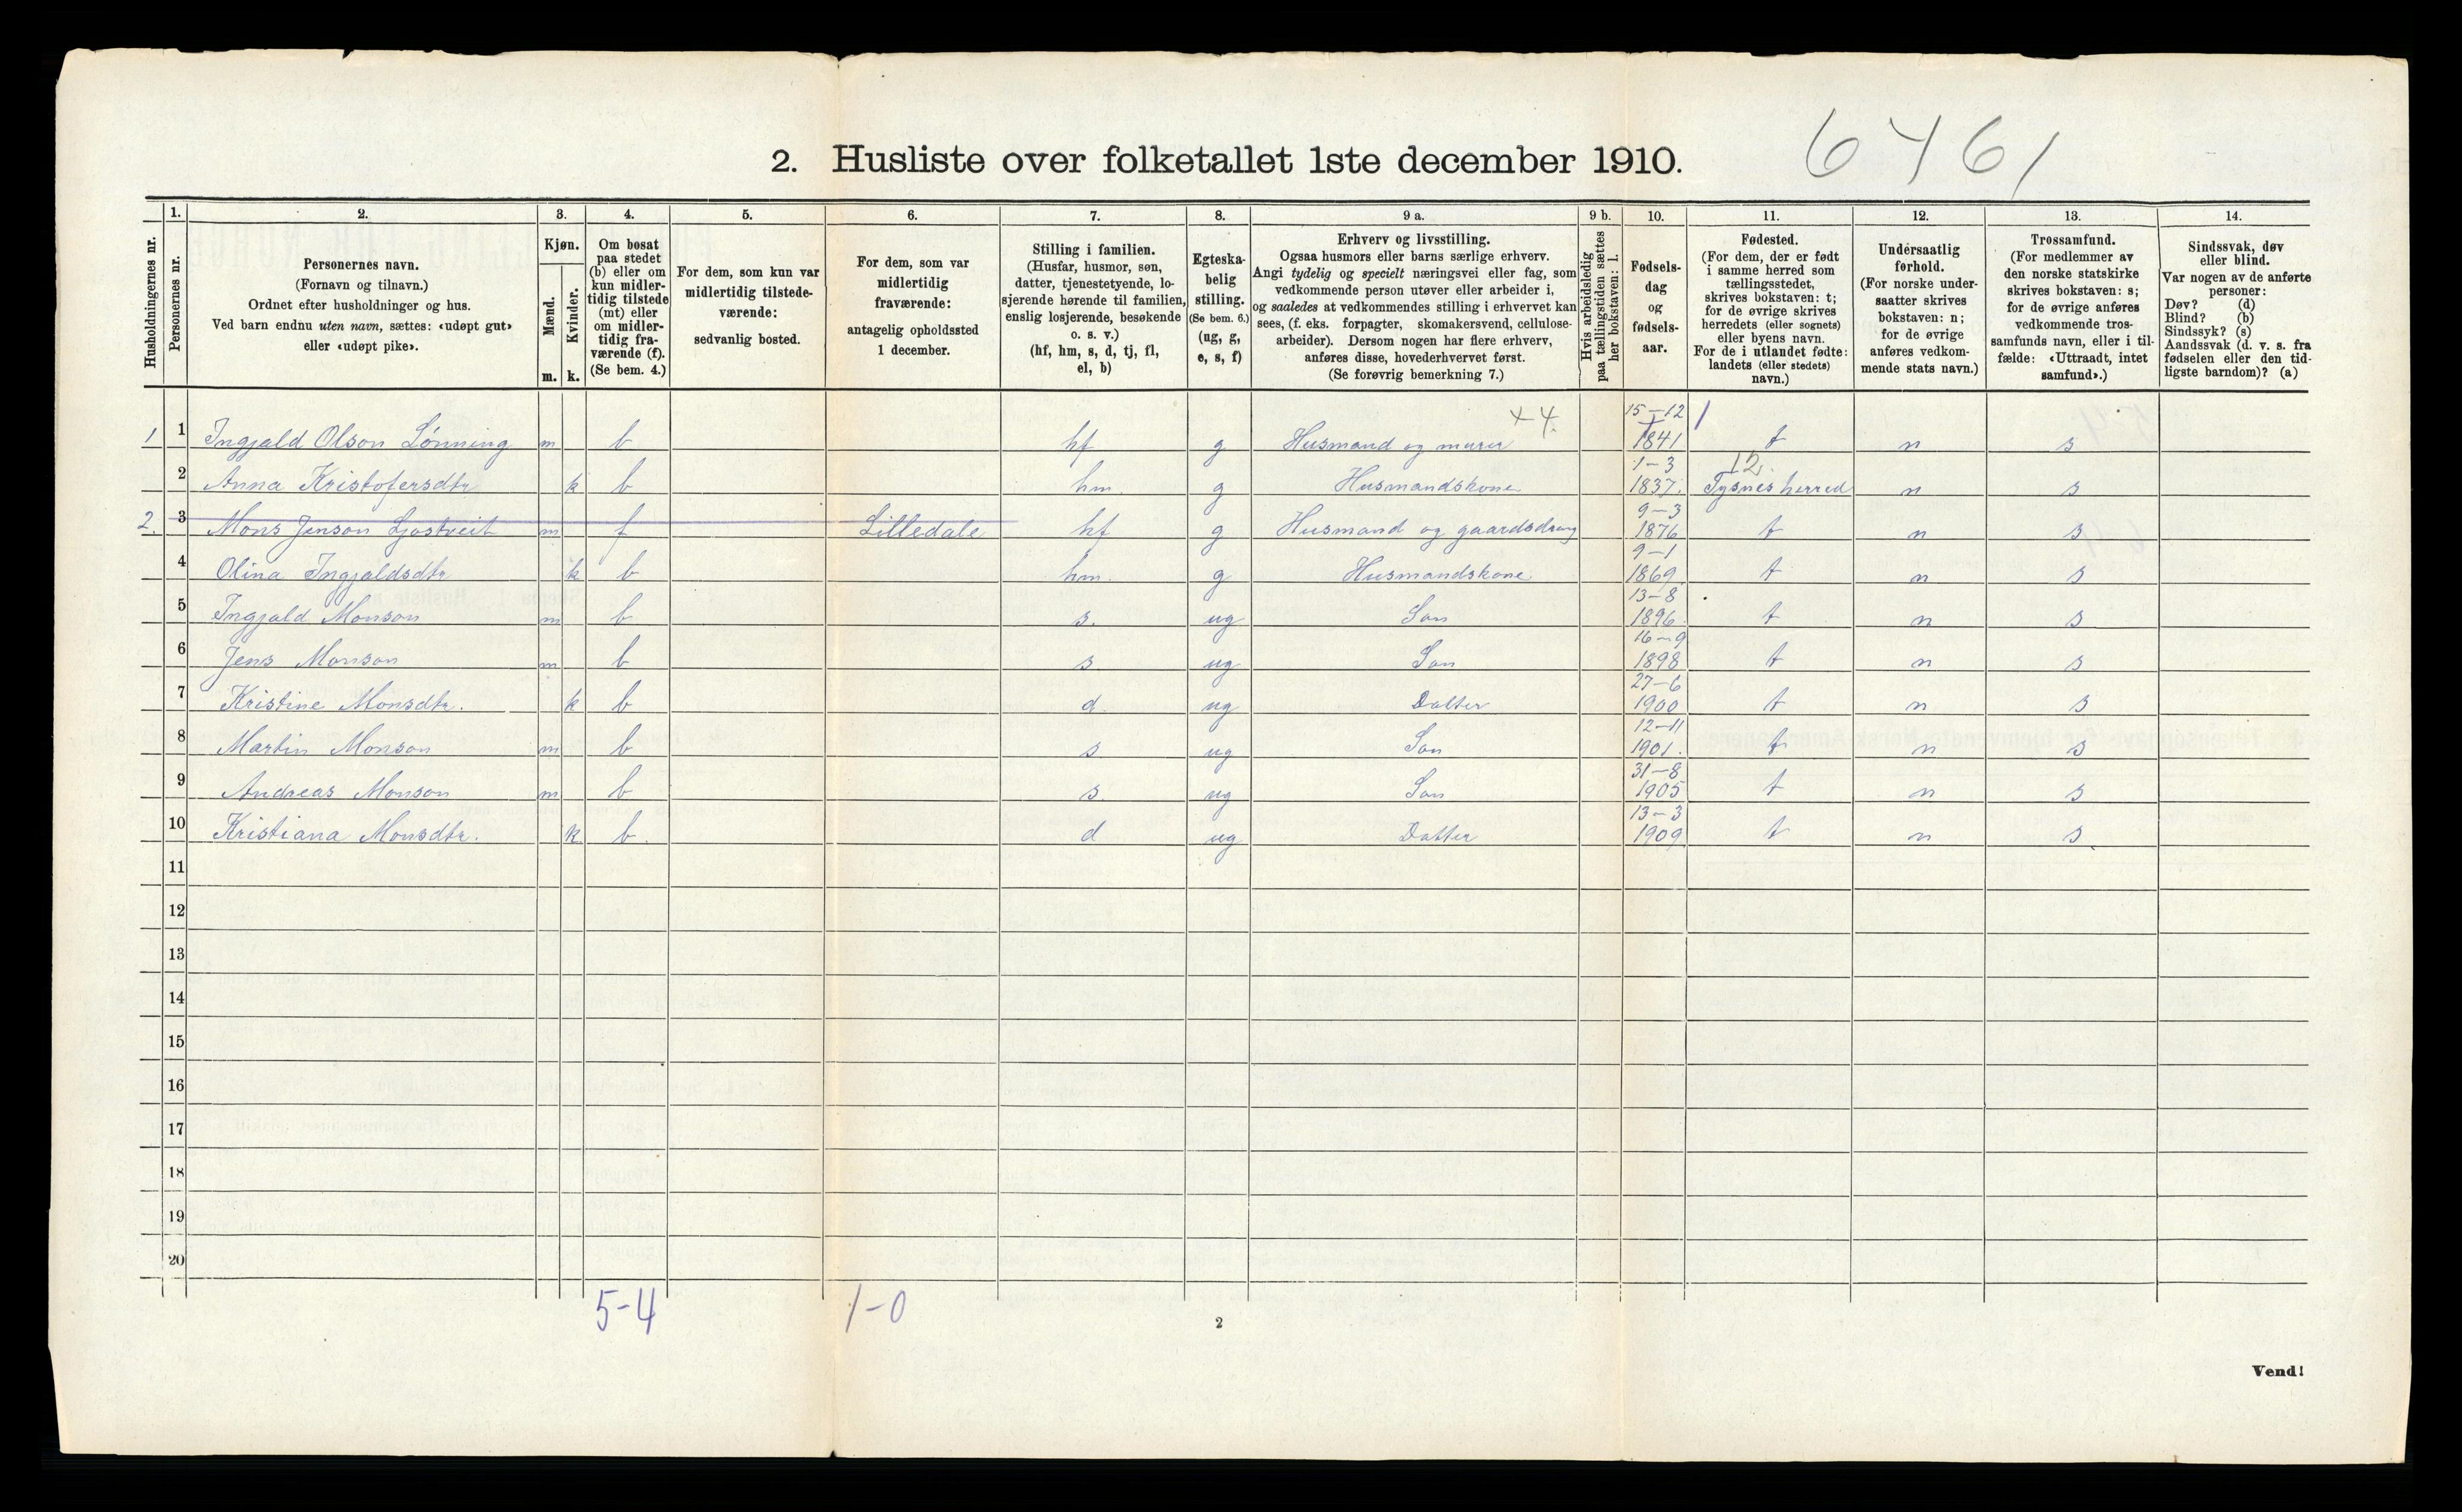 6461
2. Husliste over folketallet 1ste december 1910.
Husholdningernes nr.
1.
Personernes nr.
2.
Personernes navn.
(Fornavn og tilnavn.)
Ordnet efter husholdninger og hus.
Ved barn endnu uten navn, sættes: «udøpt gut»
eller «udøpt pike».
3.
Kjøn.
Mænd.
m.
Kvinder.
k.
4.
Om bosat
paa stedet
(b) eller om
kun midler-
tidig tilstede
(mt) eller
om midler-
tidig fra-
værende (f).
(Se bem. 4.)
5.
For dem, som kun var
midlertidig tilstede-
værende:
sedvanlig bosted.
6.
For dem, som var
midlertidig
fraværende:
antagelig opholdssted
1 december.
7.
Stilling i familien.
(Husfar, husmor, søn,
datter, tjenestetyende, lo-
sjerende hørende til familien,
enslig losjerende, besøkende
o. s. v.)
(hf, hm, s, d, tj, fl,
el, b)
8.
Egteska-
belig
stilling.
(Se bem. 6.)
(ug, g,
e, s, f)
9 a.
Erhverv og livsstilling.
Ogsaa husmors eller barns særlige erhverv.
Angi tydelig og specielt næringsvei eller fag, som
vedkommende person utøver eller arbeider i,
og saaledes at vedkommendes stilling i erhvervet kan
sees, (f. eks. forpagter, skomakersvend, cellulose-
arbeider). Dersom nogen har flere erhverv,
anføres disse, hovederhvervet først.
(Se forøvrig bemerkning 7.)
9 b.
Hvis arbeidsledig
paa tællingstiden sættes
her bokstaven: l.
10.
Fødsels-
dag
og
fødsels-
aar.
11.
Fødested.
(For dem, der er født
i samme herred som
tællingsstedet,
skrives bokstaven: t;
for de øvrige skrives
herredets (eller sognets)
eller byens navn.
For de i utlandet fødte:
landets (eller stedets)
navn.)
12.
Undersaatlig
forhold.
(For norske under-
saatter skrives
bokstaven: n;
for de øvrige
anføres vedkom-
mende stats navn.)
13.
Trossamfund.
(For medlemmer av
den norske statskirke
skrives bokstaven: s;
for de øvrige anføres
vedkommende tros-
samfunds navn, eller i til-
fælde: «Uttraadt, intet
samfund».)
14.
Sindssvak, døv
eller blind.
Var nogen av de anførte
personer:
Døv? (d)
Blind? (b)
Sindssyk? (s)
Aandssvak (d. v. s. fra
fødselen eller den tid-
ligste barndom)? (a)
1 1 Ingjald Olson Lønning m b hf g Husmand og murer +4. 15-12 1841 t n s
2 Anna Kristofersdtr k b hm. g Husmandskone 1-3 1837. 12. Tysnes herred n s
2. 3 Mons Jenson Ljostveit m f Lilledale hf g Husmand og gaardsdreng 9-3 1876 t n s
4 Olina Ingjaldsdtr k b hm. g Husmandskone 9-1 1869 t n s
5 Ingjald Monson m b s. ug Søn 13-8 1896 t n s
6 Jens Monson m b s ug Søn 16-9 1898 t n s
7 Kristine Monsdtr. k b d ug Datter 27-6 1900 t n s
8 Martin Monson m b s ug Søn 12-11 1901. t n s
9 Andreas Monson m b s. ug Søn 31-8 1905 t n s
10 Kristiana Monsdtr. k. b. d ug Datter 13-3 1909 t n s.
11
12
13
14
15
16
17
18
19
20
5-4 1-0
2
Vend!